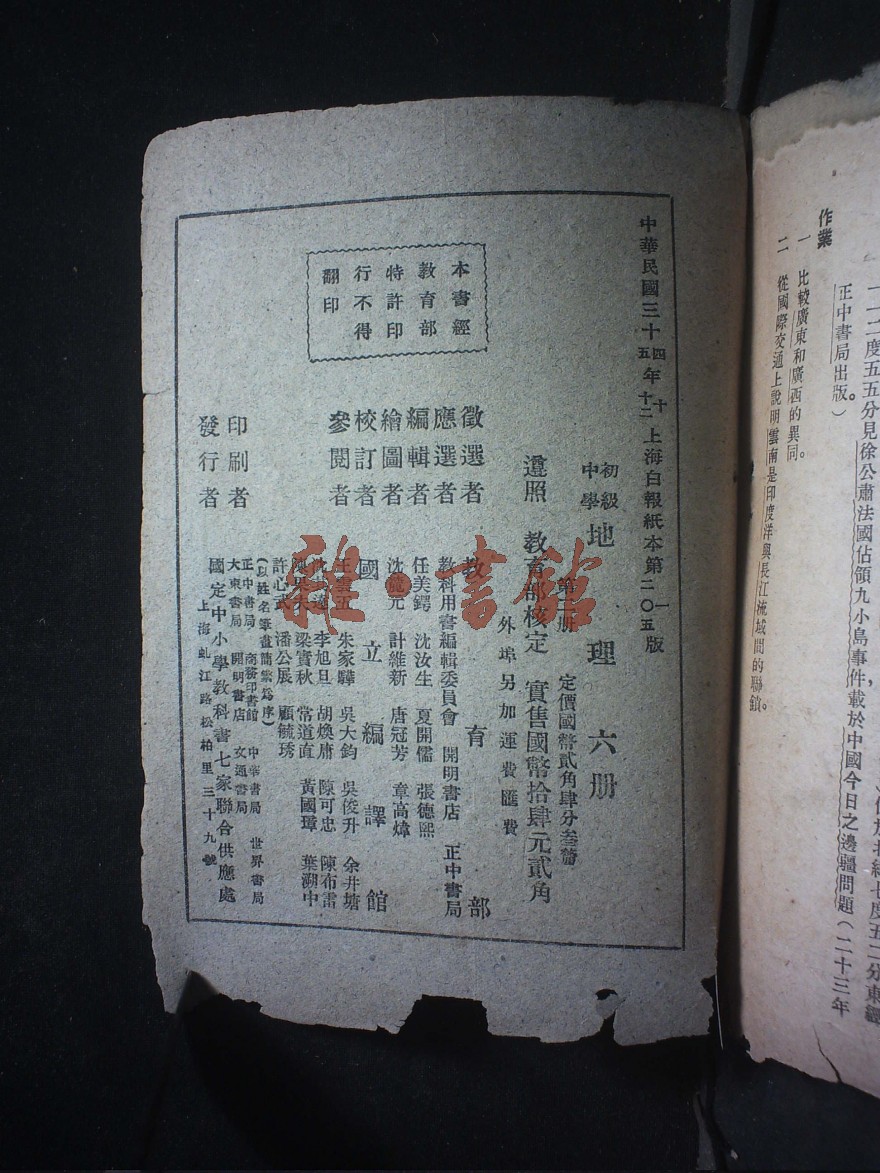 作業
一 比較廣東和廣西的異同。
二 從國際交通上說明雲南是印度洋與長江流域間的聯鎖。
正中書局出版。）
一一二度五五分見徐公肅法國佔領九小島事件載於中國今日之邊疆問題（二十三年
中華民國三十四年十
五十二
上海白報紙本第一
二〇五版
初級
中學
地理六册
第一册 定價國幣貳角肆分叁釐
遵照教育部核定 實售國幣拾肆元貳角
外埠另加運費匯費
本書經
教育部
特許印
行不得
翻印
徵選者 教育部
應選者 教科用書編輯委員會 開明書店 正中書局
編輯者 任美鍔 沈汝生 夏開儒 張德熙
繪圖者 沈鏡元 計維新 唐冠芳 章高煒
校訂者 國立編譯館
參閱者 王雲五 朱家驊 吳大鈞 吳俊升 余井塘
李旭旦 胡煥庸 陳可忠 陳布雷
陳果夫 梁實秋 常道直 黃國璋 葉溯中
許心武 潘公展 顧毓琇
（以姓名筆畫簡繁爲序）
印刷者 正中書局 商務印書館 中華書局 世界書局
大東書局 開明書店 文通書局
發行者 國定中小學教科書七家聯合供應處
上海虬江路松柏里三十九號
雜·書館